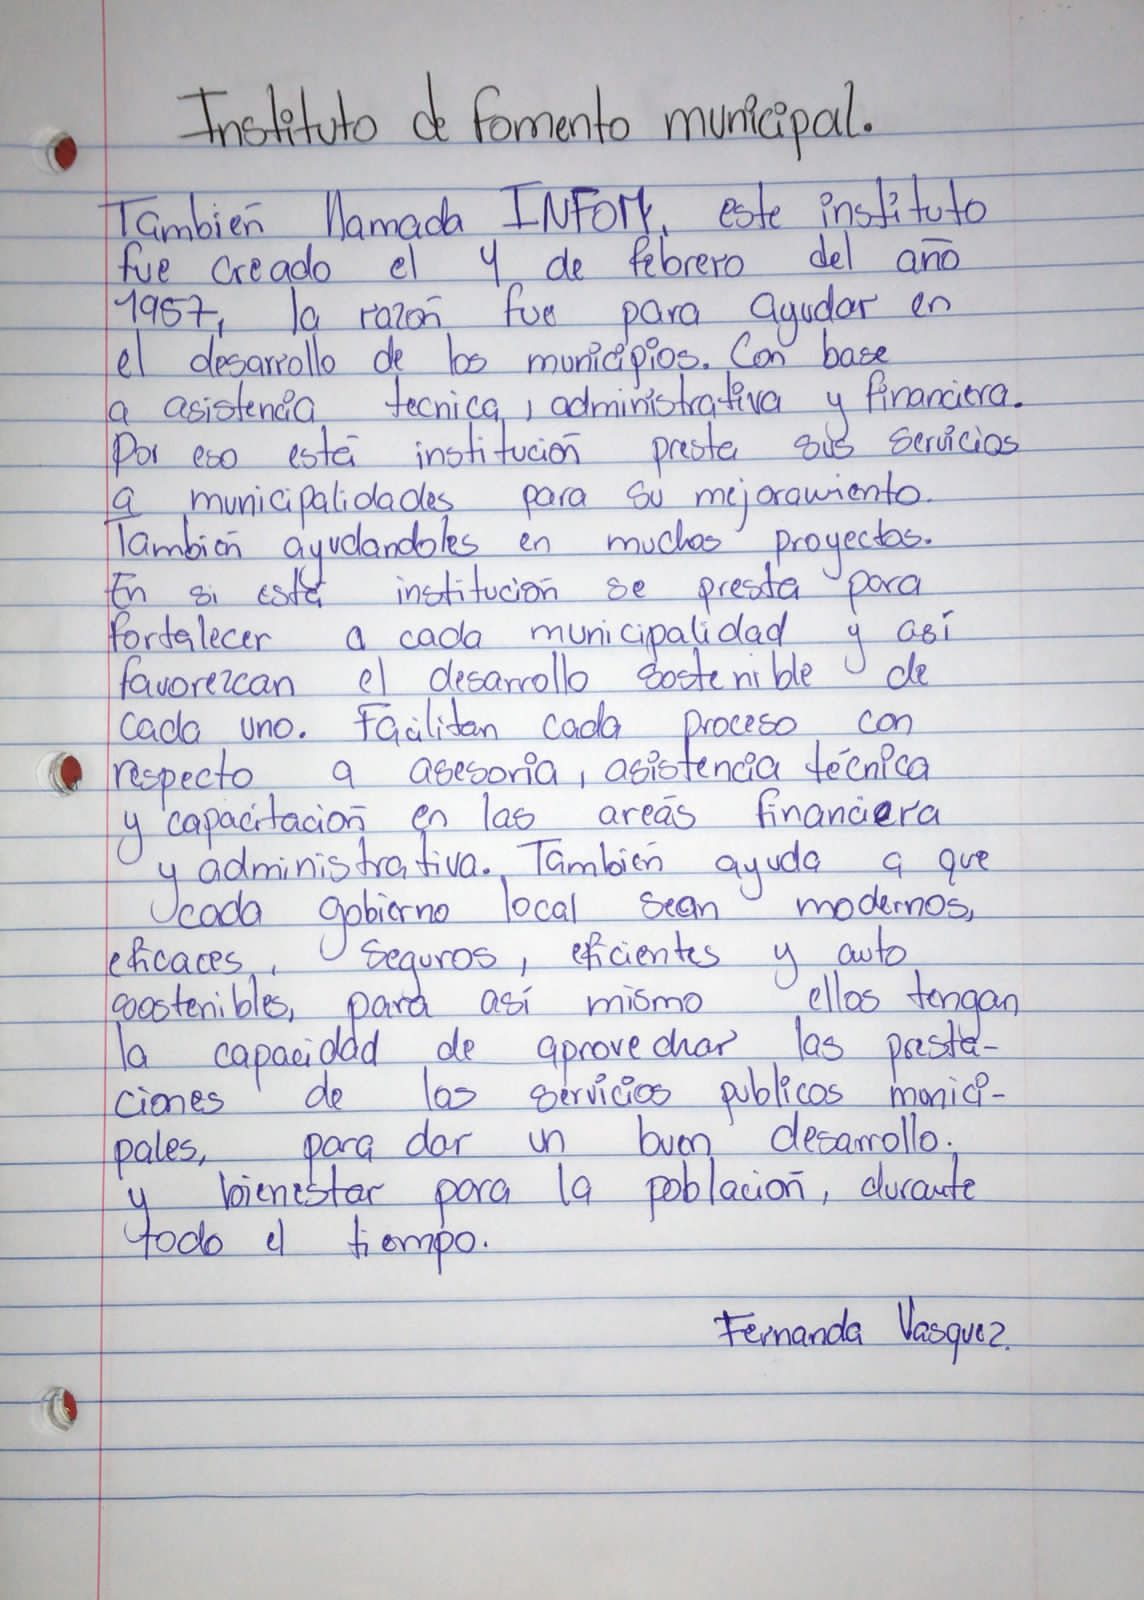 Instituto de fomento municipal.
También llamada INFOM, este instituto
fue creado el 4 de febrero del año
1957, la razón fue para ayudar en
el desarrollo de los municipios. Con base
a asistencia tecnica, administrativa y financiera.
Por eso está institución presta sus servicios
a municipalidades para su mejoramiento.
También ayudandoles en muchos proyectos.
En si está institución se presta para
fortalecer a cada municipalidad y así
favorezcan el desarrollo sostenible de
cada uno. Facilitan cada proceso con
respecto a asesoria, asistencia técnica
y capacitación en las areás financiera
y administrativa. También ayuda a que
cada gobierno local sean modernos,
eficaces, seguros, eficientes y auto
sostenibles, para así mismo ellos tengan
la capacidad de aprovechar las presta-
ciones de los servicios publicos munici-
pales, para dar un buen desarrollo.
y bienestar para la población, durante
todo el tiempo.
Fernanda Vasquez.